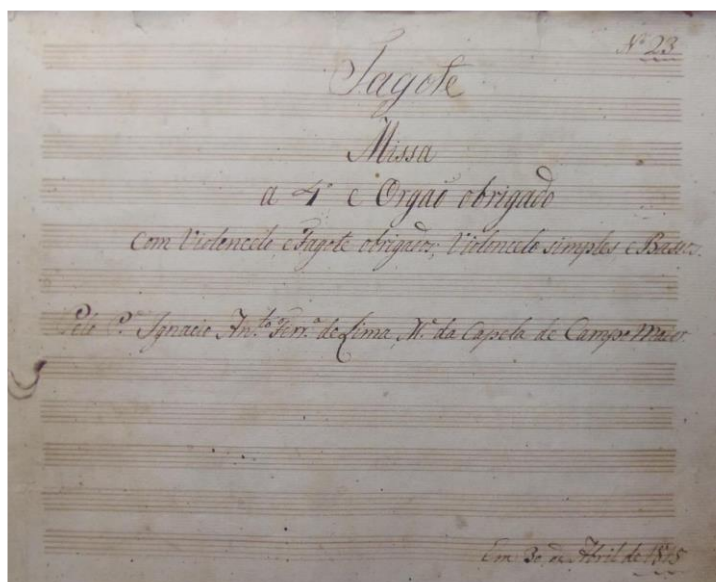 Nº 23
Fagote
Missa
a 4º e Orgaõ obrigado
Com Violoncelo, e Fagote obrigados; Violoncelo simples, e Basso.
Pelo P.º Ignacio An.to Ferr.ª de Lima, M.º da Capela de Campo Maior.
Em 30 de Abril de